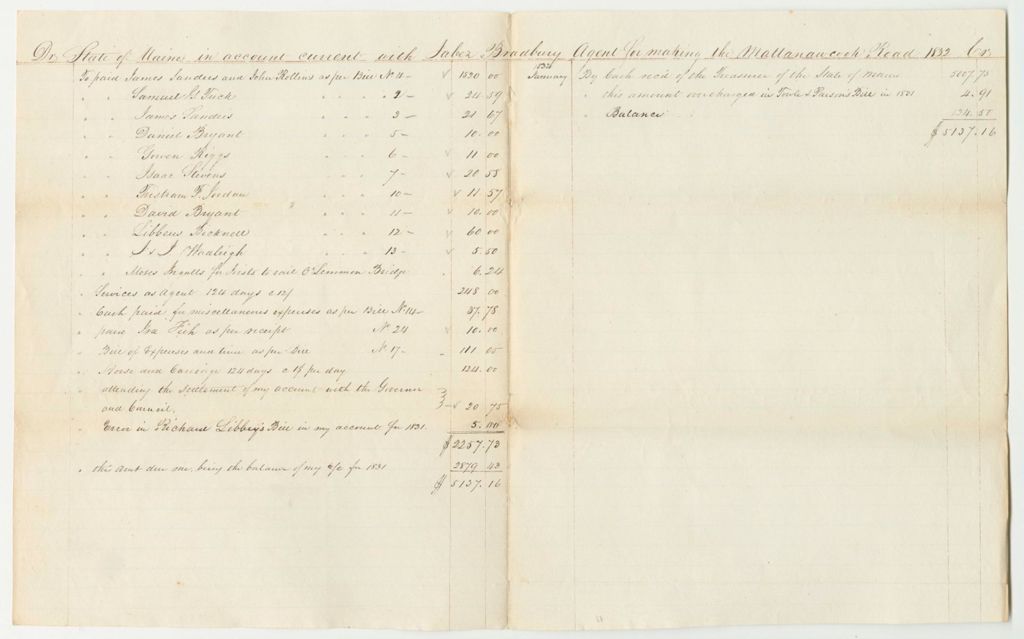 Dr. State of Maine in account current with Jabez Bradbury Agent for making the Mattanawcook Road 1832 Cr.
To paid James Sanders and John Rollins as per Bill No 1 - 1520 00
" " Samuel G Tuck " " " 2 - 24 59
" " James Sanders " " " 3 - 21 67
" " Daniel Bryant " " " 5 - 10.00
" " Gowen Riggs " " " 6 - 11 00
" " Isaac Stevens " " " 7 - 20 58
" " Tristram F. Jordan " " " 10 - 11 57
" " David Bryant " " " 11 - 10.00
" " Libbeus Bicknell " " " 12 - 60 00
" " J & J 13 - 5.50
" " Moses for to rail Bridge 6.24
" Services as Agent 124 days 248 00
" Cash paid for miscellaneous expenses as per Bill No 14 - 37.78
" paid Ira Fish as per receipt No 24 10.00
" Bill of Expenses and time as per Bill No 17 - 111 05
" Horse and Carriage 124 days per day 124.00
" attending the settlement of my account with the Governor
and Council. 20 75
" Error in Richard Libbey's Bill in my account for 1831. 5.00
$2257.73
" this amt due me, being the balance of my a/c for 1831 2879 43
$5137.16
January By Cash recd of the Treasurer of the State of Maine 5007.75
" this amount overcharged in Towle & Parsons Bill in 1831 4.91
" Balance 124.50
$5137.16